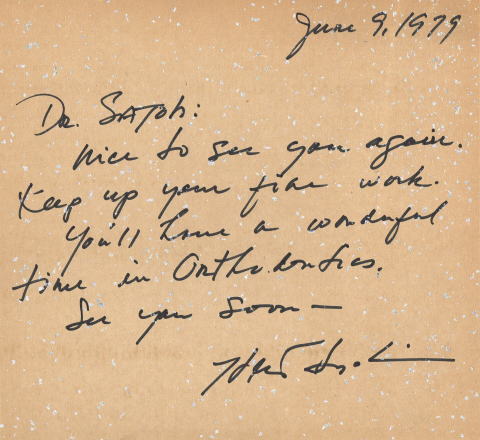 June 9, 1979
Dr. Satoh:
Nice to see you again.
Keep up your fine work.
You'll have a wonderful
time in Orthodontics.
See you soon —